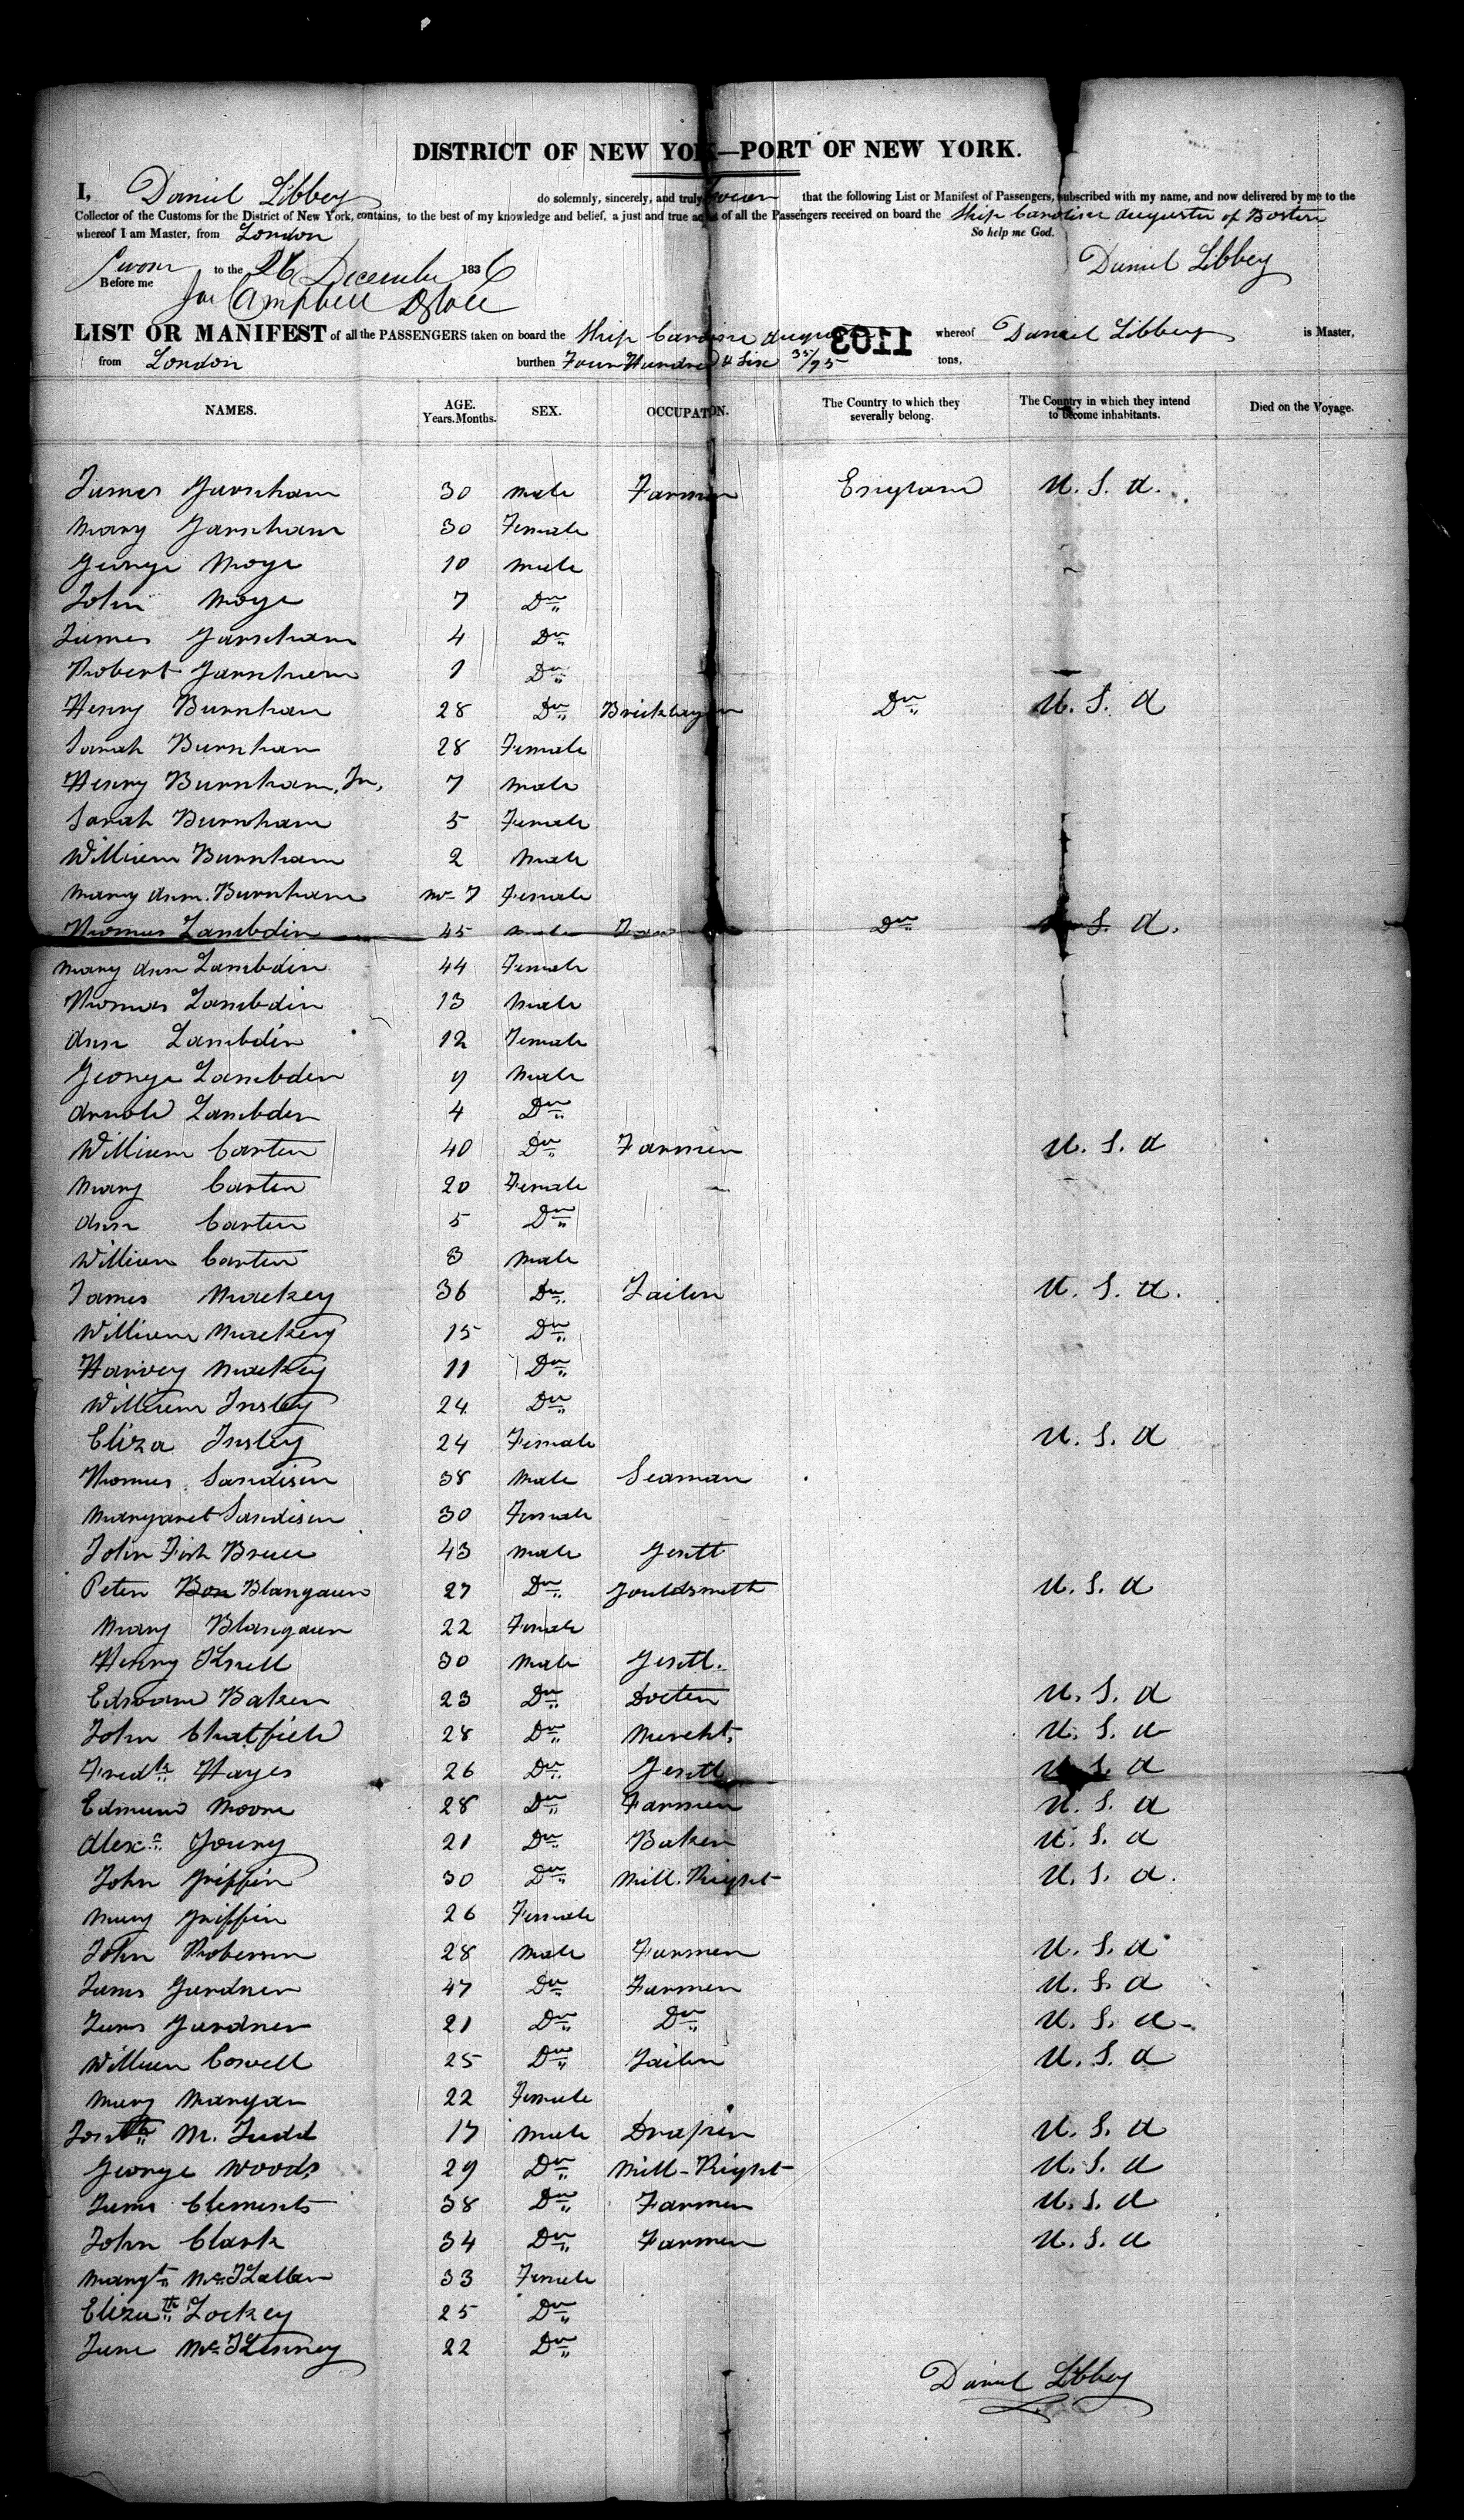 DISTRICT OF NEW YORK—PORT OF NEW YORK.
I, Daniel Libbey do solemnly, sincerely, and truly swear that the following List or Manifest of Passengers, subscribed with my name, and now delivered by me to the
Collector of the Customs for the District of New York, contains, to the best of my knowledge and belief, a just and true of all the Passengers received on board the Ship Caroline Augusta of Boston
whereof I am Master, from London So help me God.
Sworn to the 26 December 1836 Daniel Libbey
Before me
Campbell
LIST OR MANIFEST of all the PASSENGERS taken on board the Ship Caroline Augusta 1103 whereof Daniel Libbey is Master,
from London burthen Four Hundred & Six 35/95 tons,
NAMES. AGE. Years. Months. SEX. OCCUPATION. The Country to which they severally belong. The Country in which they intend to become inhabitants. Died on the Voyage.
James Garnham 30 male Farmer England U. S. A.
Mary Garnham 30 Female
George Moye 10 male
John Moye 7 Do
James Garnham 4 Do
Robert Garnham 1 Do
Henry Burnham 28 Do Bricklayer Do U. S. A
Sarah Burnham 28 Female
Henry Burnham, Jr, 7 male
Sarah Burnham 5 Female
William Burnham 2 male
Mary Ann Burnham mo 7 Female
Thomas Lambdin 45 male Do U. S. A.
Mary Ann Lambdin 44 Female
Thomas Lambdin 13 male
Ann Lambdin 12 Female
George Lambden 9 male
Arnold Lambden 4 Do
William Carter 40 Do Farmer U. S. A
Mary Carter 20 Female
Ann Carter 5 Do
William Carter 3 male
James Mackey 36 Do Tailor U. S. A.
William Mackey 15 Do
Harvey Mackey 11 Do
William Insley 24 Do
Eliza Insley 24 Female U. S. A
Thomas Sandison 38 male Seaman
Margaret Sandison 30 Female
John Fish Bruce 43 male Gentl
Peter Bon Blangaun 27 Do Gouldsmith U. S. A
Mary Blangaun 22 Female
Henry Knell 30 male Gentl.
Edward Baker 23 Do Docter U. S. A
John Chatfield 28 Do Mercht. U. S. A
Fredk Hayes 26 Do Gentl U. S. A
Edmund Moore 28 Do Farmer U. S. A
Alexr Young 21 Do Baker U. S. A
John Griffin 30 Do Mill. Right U. S. A.
Mary Griffin 26 Female
John Roberson 28 male Farmer U. S. A
James Gardner 47 Do Farmer U. S. A
James Gardner 21 Do Do U. S. A
William Cowell 25 Do Tailor U. S. A
Mary Morgan 22 Female
M. Judd 17 male Draper U. S. A
George Woods 29 Do Mill-Right U. S. A
James Clements 38 Do Farmer U. S. A
John Clark 34 Do Farmer U. S. A
Margt 33 Female
Elizath Lockey 25 Do
Jane McKenney 22 Do
Daniel Libbey